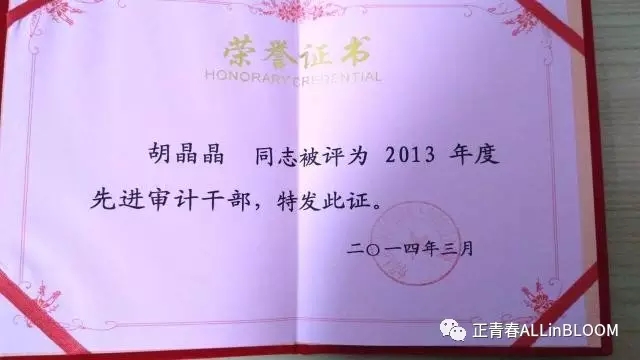 荣誉证书
HONORARY CREDENTIAL
胡晶晶 同志被评为 2013 年度
先进审计干部，特发此证。
二〇一四年三月
正青春ALLinBLOOM